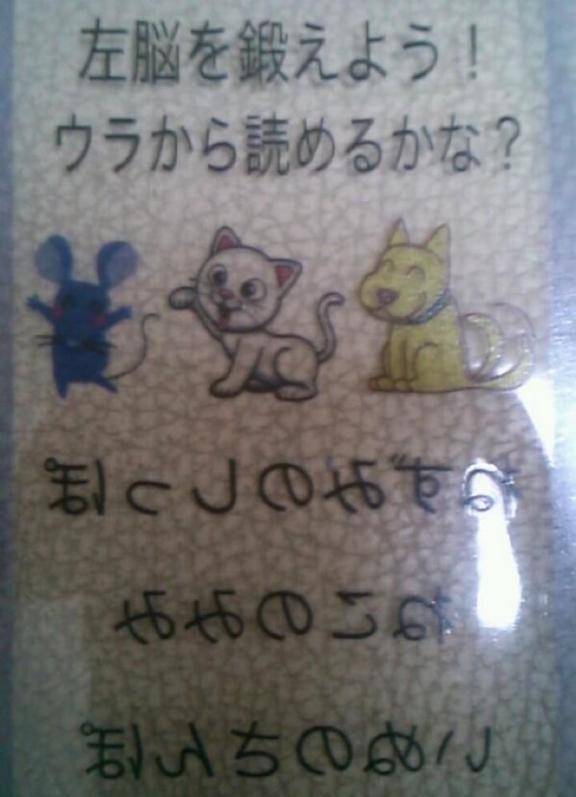 左脳を鍛えよう！
ウラから読めるかな？
ねずみのしっぽ
ねこのみみ
いぬのさんぽ